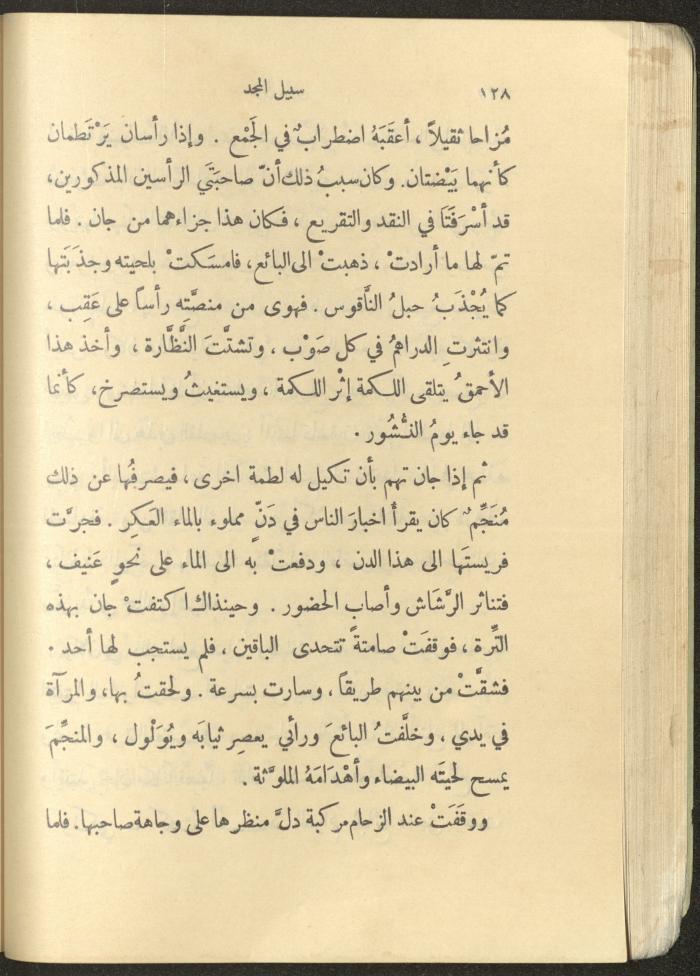 ١٢٨
سبيل المجد
مُزاحا ثقيلاً ، أعقَبَهُ اضطرابٌ في الجَمْع . وإذا رأسان يَرْتَطمان
كأنهما بَيْضتان. وكان سببُ ذلك أنّ صاحبَتَي الرأسين المذكورين،
قد أسْرَفَتَا في النقد والتقريع ، فكان هذا جزاءهما من جان . فلما
تمّ لها ما أرادتْ ، ذهبتْ الى البائع، فامسَكتْ بلحيته وجذَبَتها
كما يُجْذَبُ حبلُ النَّاقوس . فهوى من منصَّتِه رأساً على عَقِب ،
وانتثرتِ الدراهمُ في كل صَوْب ، وتشتَّتَ النَّظَّارة ، وأخذ هذا
الأحمقُ يتلقى اللكمة إثْر اللكمة ، ويستغيثُ ويستصرخ، كأنما
قد جاء يومُ النُّشُور .
ثم إذا جان تهم بأن تكيل له لطمة اخرى ، فيصرفُها عن ذلك
مُنَجِّمٌ كان يقرأ اخبارَ الناس في دَنٍّ مملوء بالماء العَكِر . فجرَّت
فريستَها الى هذا الدن ، ودفعتْ به الى الماء على نحوٍ عَنيف ،
فتناثر الرَّشَاش وأصاب الحضور . وحينذاك اكتفتْ جان بهذه
التِّرة ، فوقفَتْ صامتةً تتحدى الباقين ، فلم يستجب لها أحد .
فشقَّتْ من بينهم طريقاً ، وسارت بسرعة . ولحقتُ بها، والمرآة
في يدي ، وخلَّفتُ البائعَ ورأبي يعصر ثيابَه ويُوَلْول ، والمنجِّمَ
يمسح لحيتَه البيضاء وأهْدَامَهُ الملوَّثة .
ووقَفَتْ عند الزحام مركبة دلَّ منظرها على وجاهة صاحبها. فلما